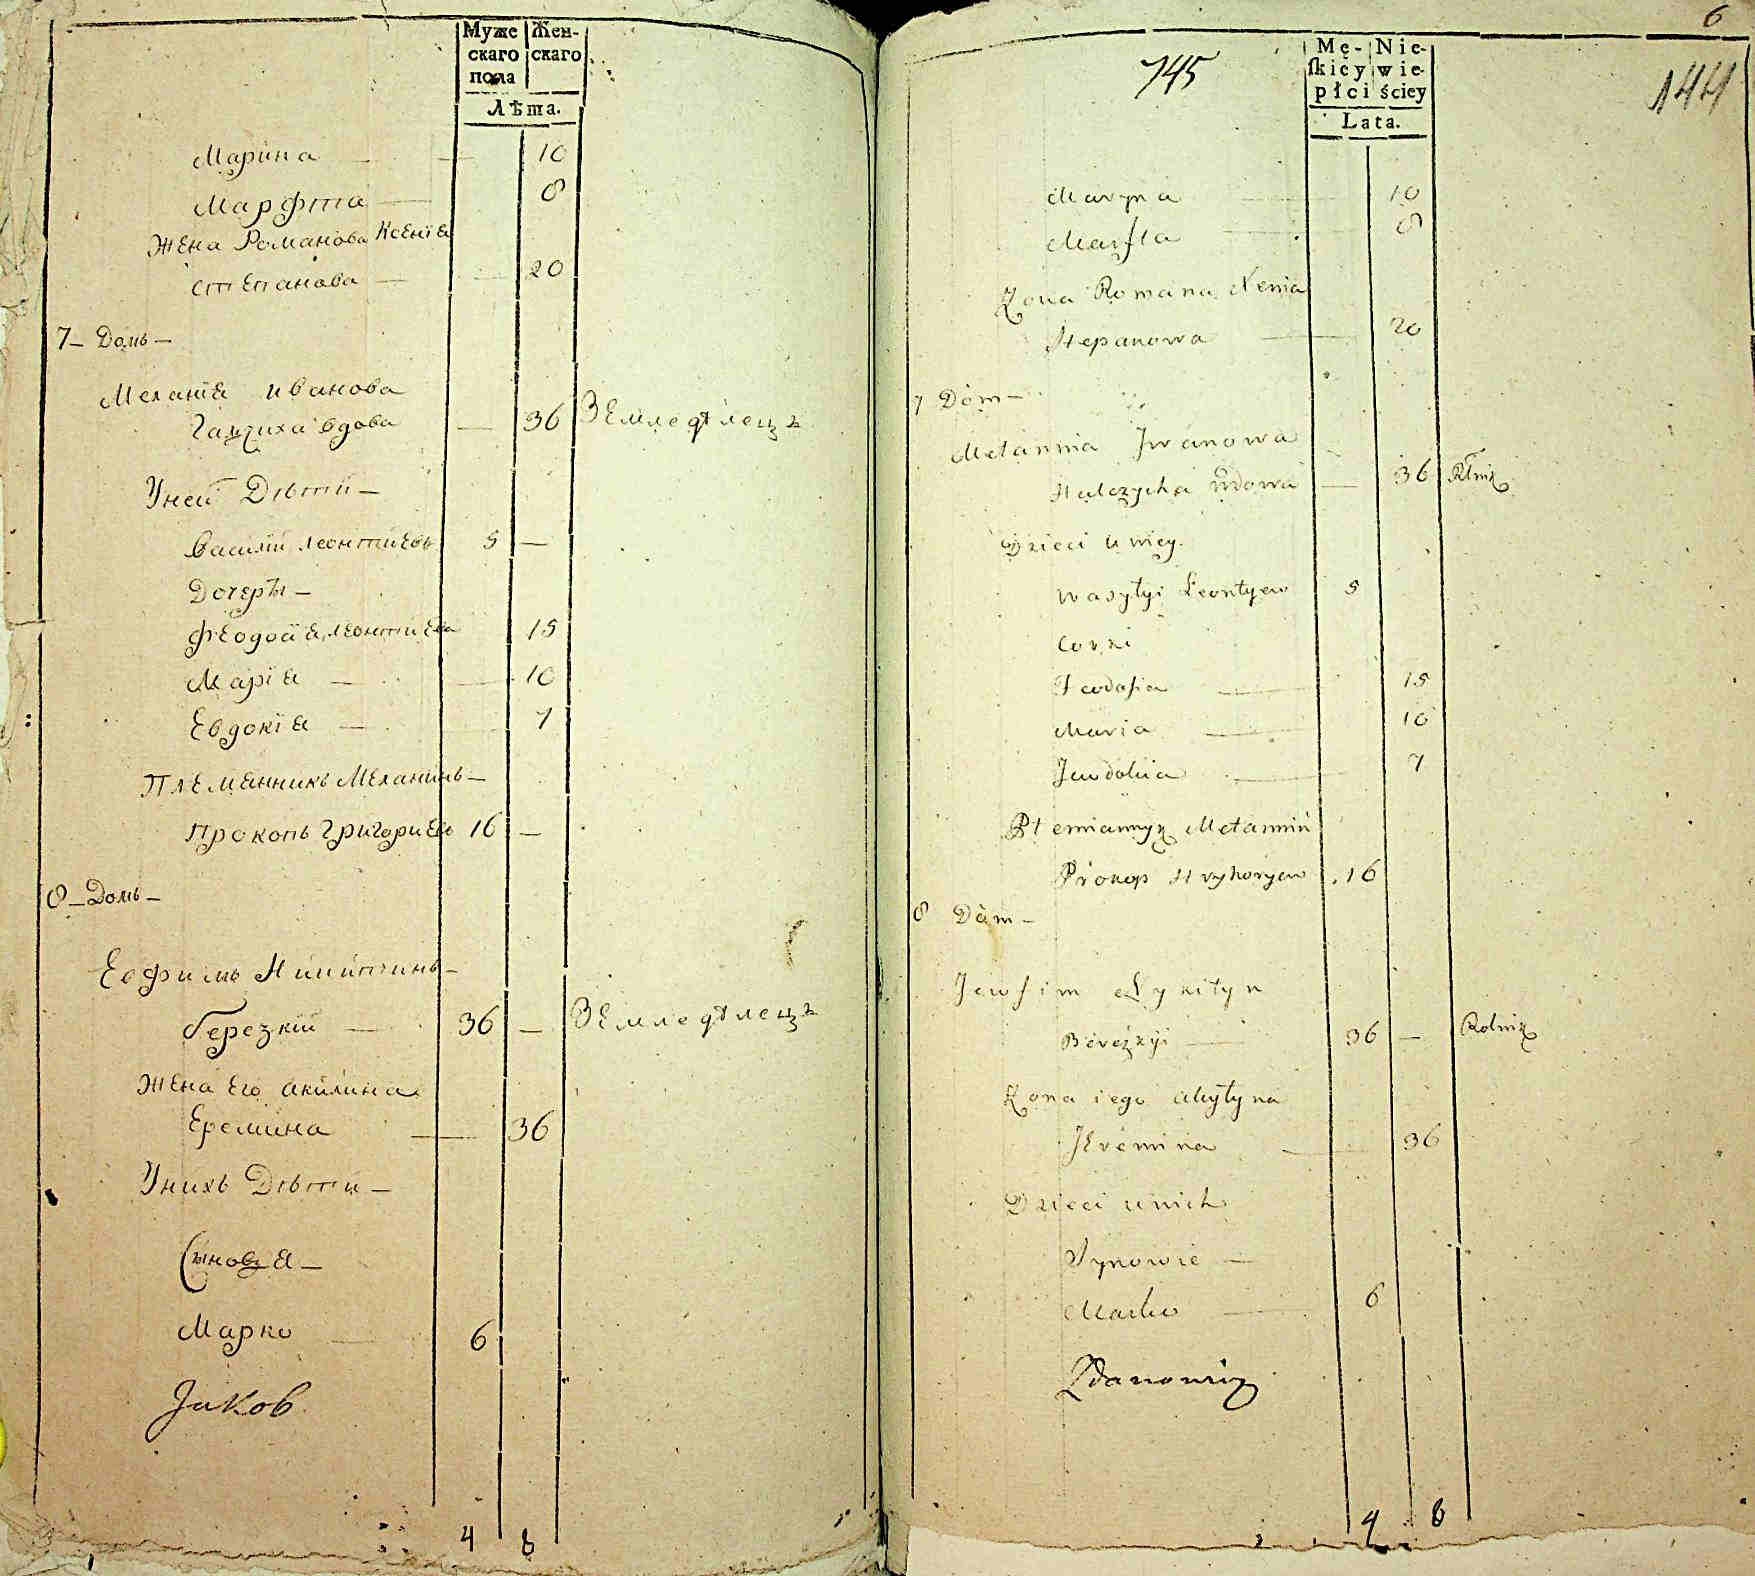 Муже Жен-
скаго скаго
пола
Лѣта.
Марина — 10
Марфта — 8
Жена Романова Ксенїя
Степанова — 20
7 — Домъ —
Меланїя Иванова
Галчиха вдова — 36 Земледѣлецъ
Уней Дѣтѝ —
Василїй Леонтиевъ 5 —
Дочеры —
Феодосїя Леонтиева 15
Марїя — 10
Евдокїя — 7
Племянникъ Меланинъ —
Прокопъ Григориев 16 —
8 — Домъ —
Евфимъ Никитинъ —
Березкїй — 36 — Земледѣлецъ
Жена Его Акилина
Еремина — 36
Унихъ Дѣти —
Сыновя —
Марко — 6
Jаков
4 8
6
745
144
Mę- Nie-
ſkiéy wie-
płci ściey
Lata.
Maryna — 10
Marfta — 8
Żona Romana Xenia
Stepanowa — 20
7 Dóm —
Metannia Jwanowa
Halczycha ŭdowa — 36 Rolnik
Dzieci u niey.
Wasyłyi Leontyew 5
Corki
Teodosia — 15
Maria — 10
Jewdokia — 7
Plemiannyk Metannin
Prokop Hryhoryew 16
8 Dóm —
Jewfim Nykityn
Bereżkyi — 36 — Rolnik
Żona iego Akyłyna
Jeremina — 36
Dzieci u nich
Synowie —
Marko — 6
Zdanowicz
4 8